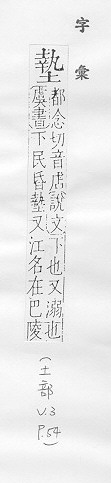 字彙
墊
都念切音店說文下也又溺也
虞書下民昏墊又江名在巴陵
(土部
V.3
P.54)